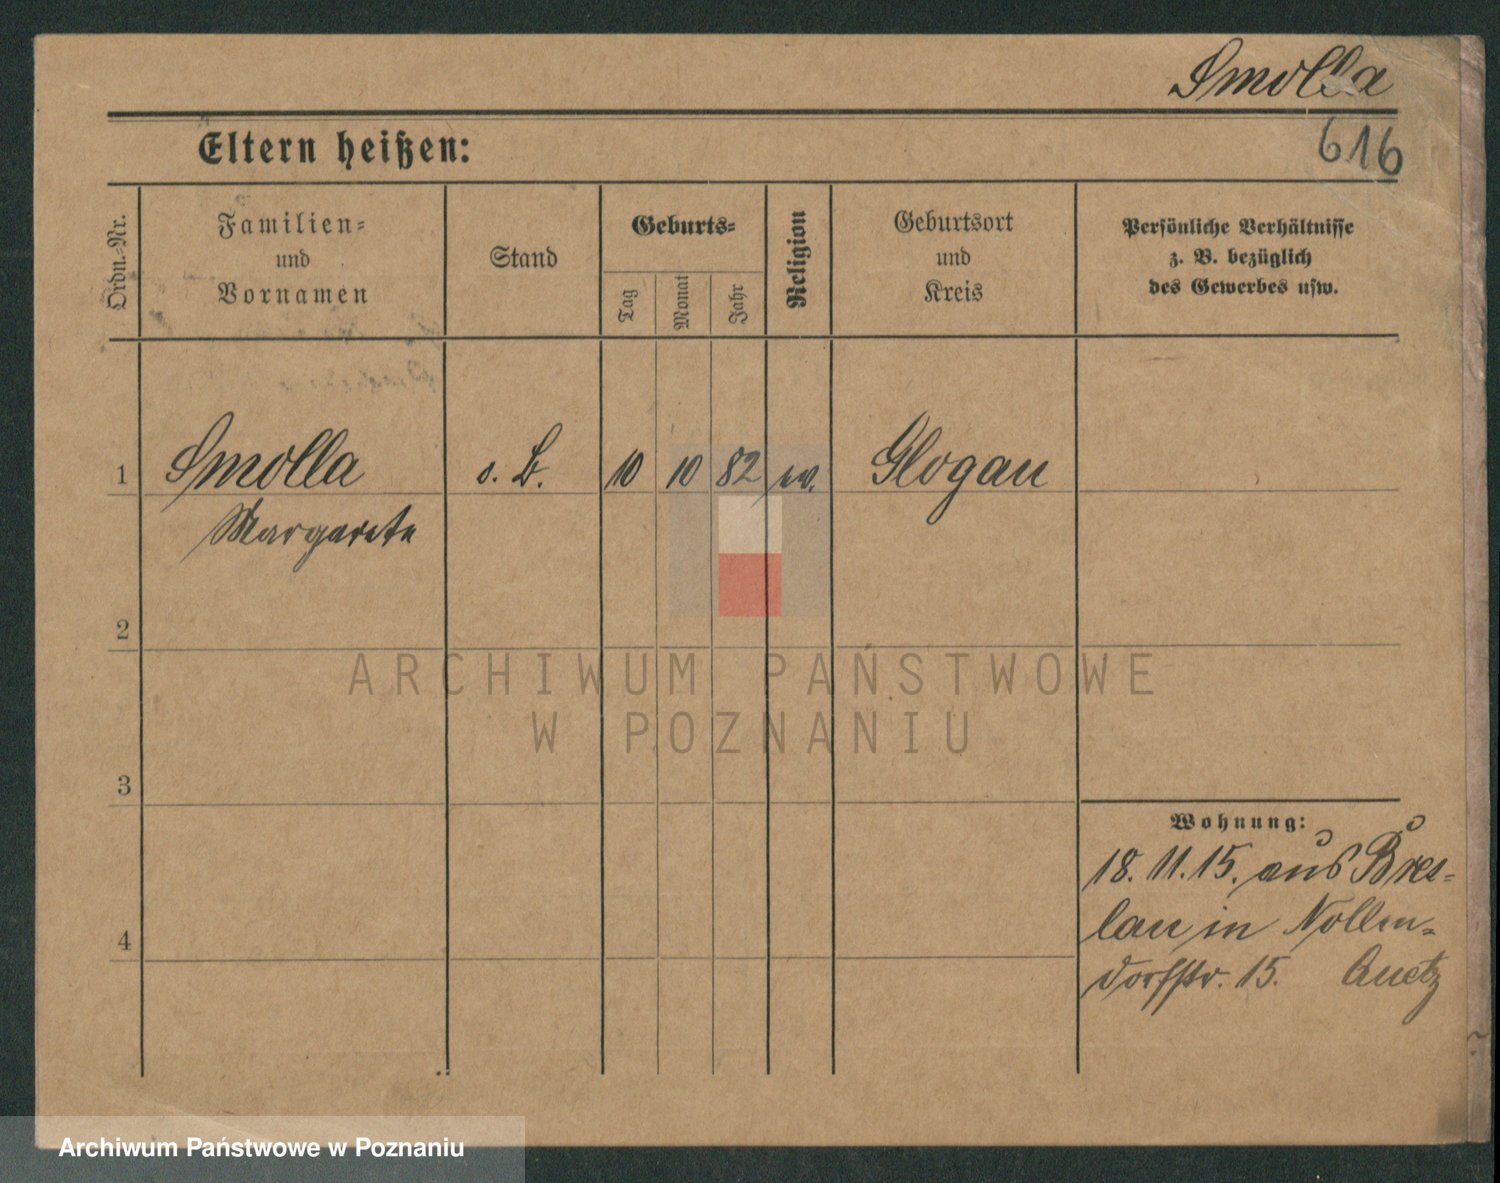 Smolla
616
Eltern heißen:
Ordn.-Nr.
Familien-
und
Vornamen
Stand
Geburts-
Tag
Monat
Jahr
Religion
Geburtsort
und
Kreis
Persönliche Verhältnisse
z. B. bezüglich
des Gewerbes usw.
1 Smolla o. B. 10 10 82 ev. Glogau
Margarete
2
3
4
Wohnung:
18. 11. 15. aus Bres-
lau in Nollen-
dorfstr. 15.
ARCHIWUM PAŃSTWOWE
W POZNANIU
Archiwum Państwowe w Poznaniu